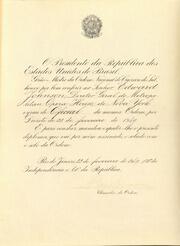 O Presidente da República dos
Estados Unidos do Brasil,
Grão-Mestre da Ordem Nacional do Cruzeiro do Sul,
houve por bem conferir ao Senhor Edward
Johnson, Diretor Geral do Metropo-
litan Opera House, de Nova York
o grau de Oficial da mesma Ordem, por
Decreto de 22 de fevereiro de 1949.
E para constar, mandou expedir-lhe o presente
diploma, que vai por mim assinado, e selado com
o selo da Ordem.
Rio de Janeiro, 22 de fevereiro de 1949, 128º da
Independência e 61º da República.
Chanceler da Ordem